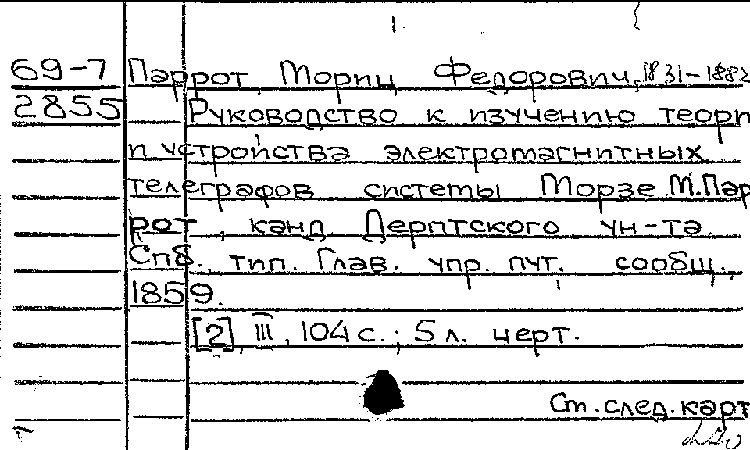 69-7 Паррот, Мориц Федорович, 1831-1882
2855 Руководство к изучению теори
и устройства электромагнитных
телеграфов системы Морзе М.Пар
рот, канд. Дерптского ун-та.
Спб., тип. Глав. упр. пут. сообщ.,
1859.
[2] III, 104 с.; 5 л. черт.
Сm. след. карт